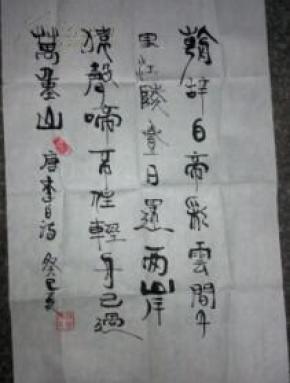 朝辞白帝彩雲間千
里江陵壹日還两岸
猿聲啼不住輕舟已過
萬重山 唐李白诗 癸巳